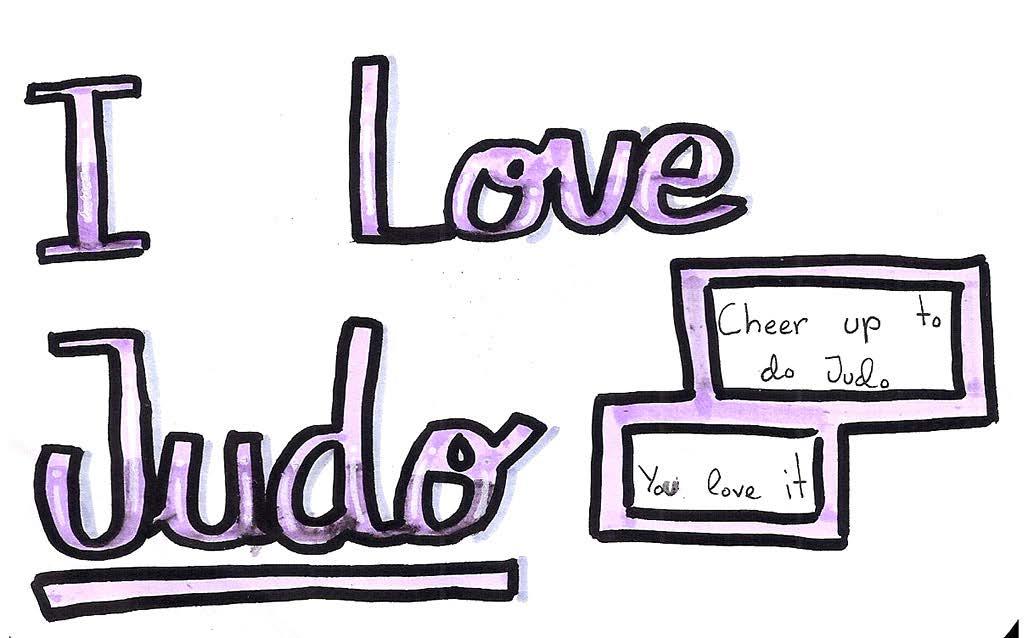 I Love
Judo
Cheer up to
do Judo
You love it